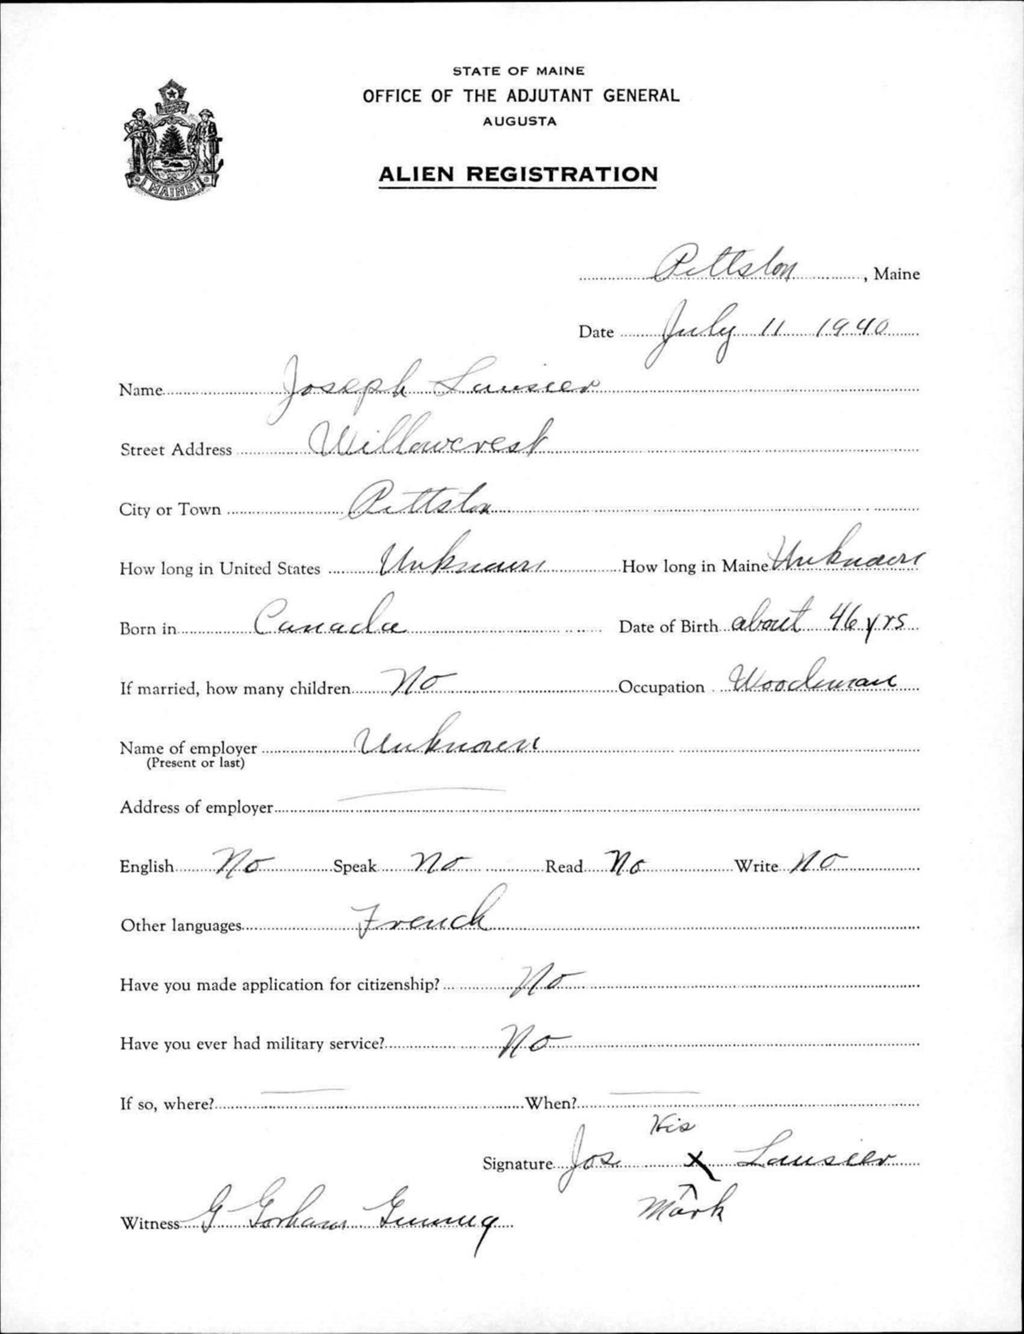 STATE OF MAINE
OFFICE OF THE ADJUTANT GENERAL
AUGUSTA
ALIEN REGISTRATION
MAINE
Pittston, Maine
Date July 11 1940
Name Joseph Lausier
Street Address Willowcrest
City or Town Pittston
How long in United States Unknown How long in Maine Unknown
Born in Canada Date of Birth about 46 yrs
If married, how many children No Occupation Woodsman
Name of employer Unknown
(Present or last)
Address of employer
English No Speak No Read No Write No
Other languages French
Have you made application for citizenship? No
Have you ever had military service? No
If so, where? When?
His
Signature Jos X Lausier
Mark
Witness G Gorham